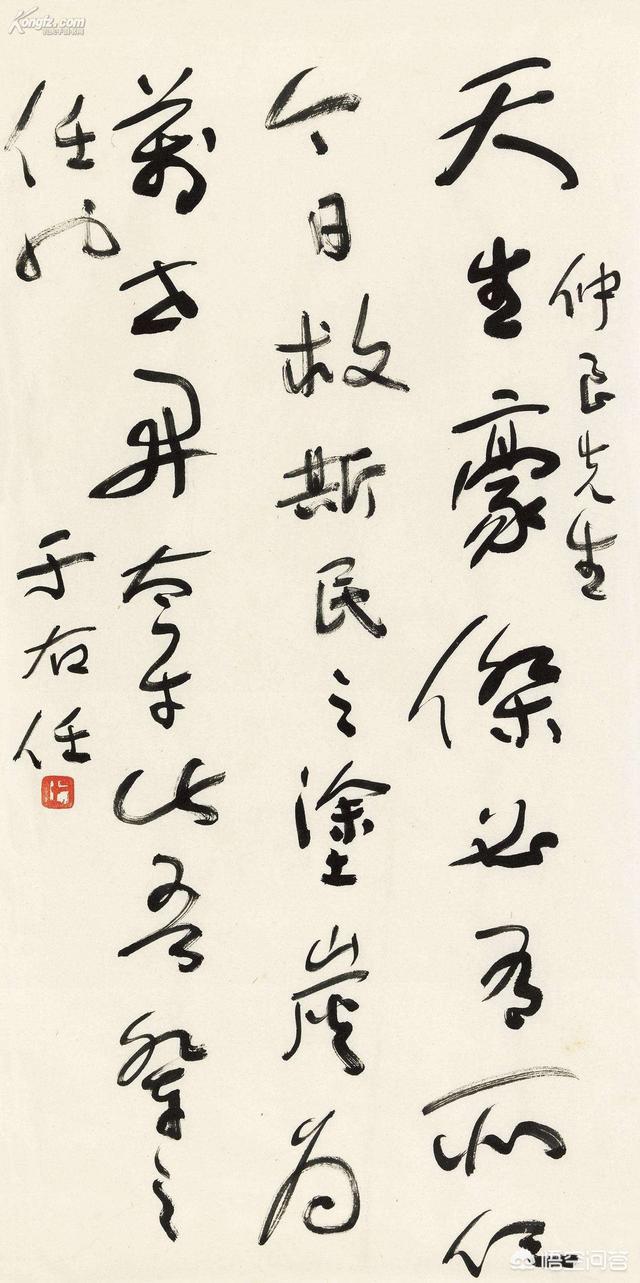 仲良先生
天生豪傑必有所任
今日救斯民之塗炭為
萬世開太平此吾輩之
任也
于右任
Kongfz.com
悟空问答